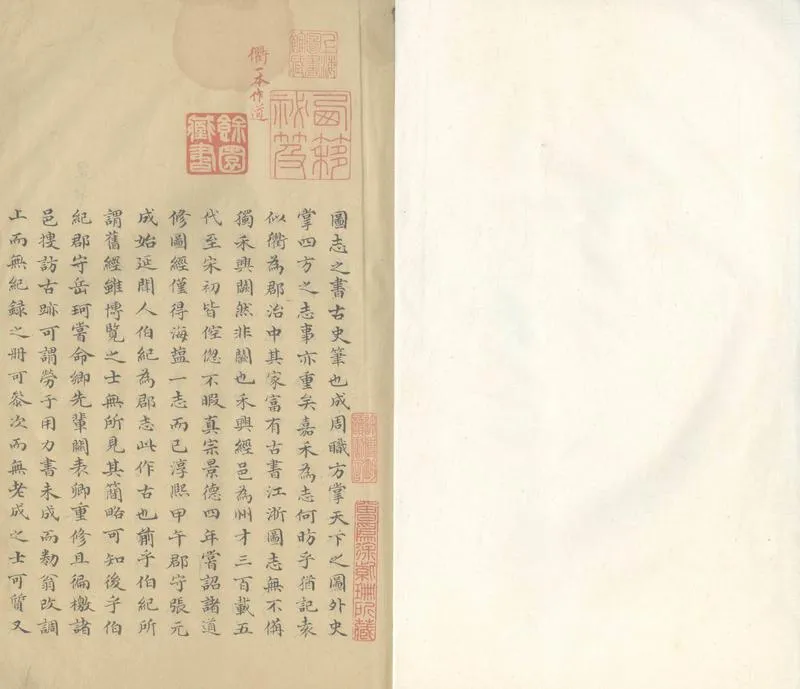 上海圖書館藏
衢一本作道
餘園藏書
圖志之書古史筆也成周職方掌天下之圖外史
掌四方之志事亦重矣嘉禾為志何昉乎猶記袁
似衢為郡治中其家富有古書江浙圖志無不偹
獨禾興闕然非闕也禾興經邑為州才三百載五
代至宋初皆倥偬不暇真宗景德四年嘗詔諸道
修圖經僅得海盬一志而已淳熈甲午郡守張元
成始延聞人伯紀為郡志此作古也前乎伯紀所
謂舊經雖博覽之士無所見其簡略可知後乎伯
紀郡守岳珂嘗命鄉先輩關表卿重修且徧檄諸
邑搜訪古跡可謂勞乎用力書未成而勌翁改調
上而無紀録之冊可叅次而無老成之士可質又
曾爲徐紫珊所藏